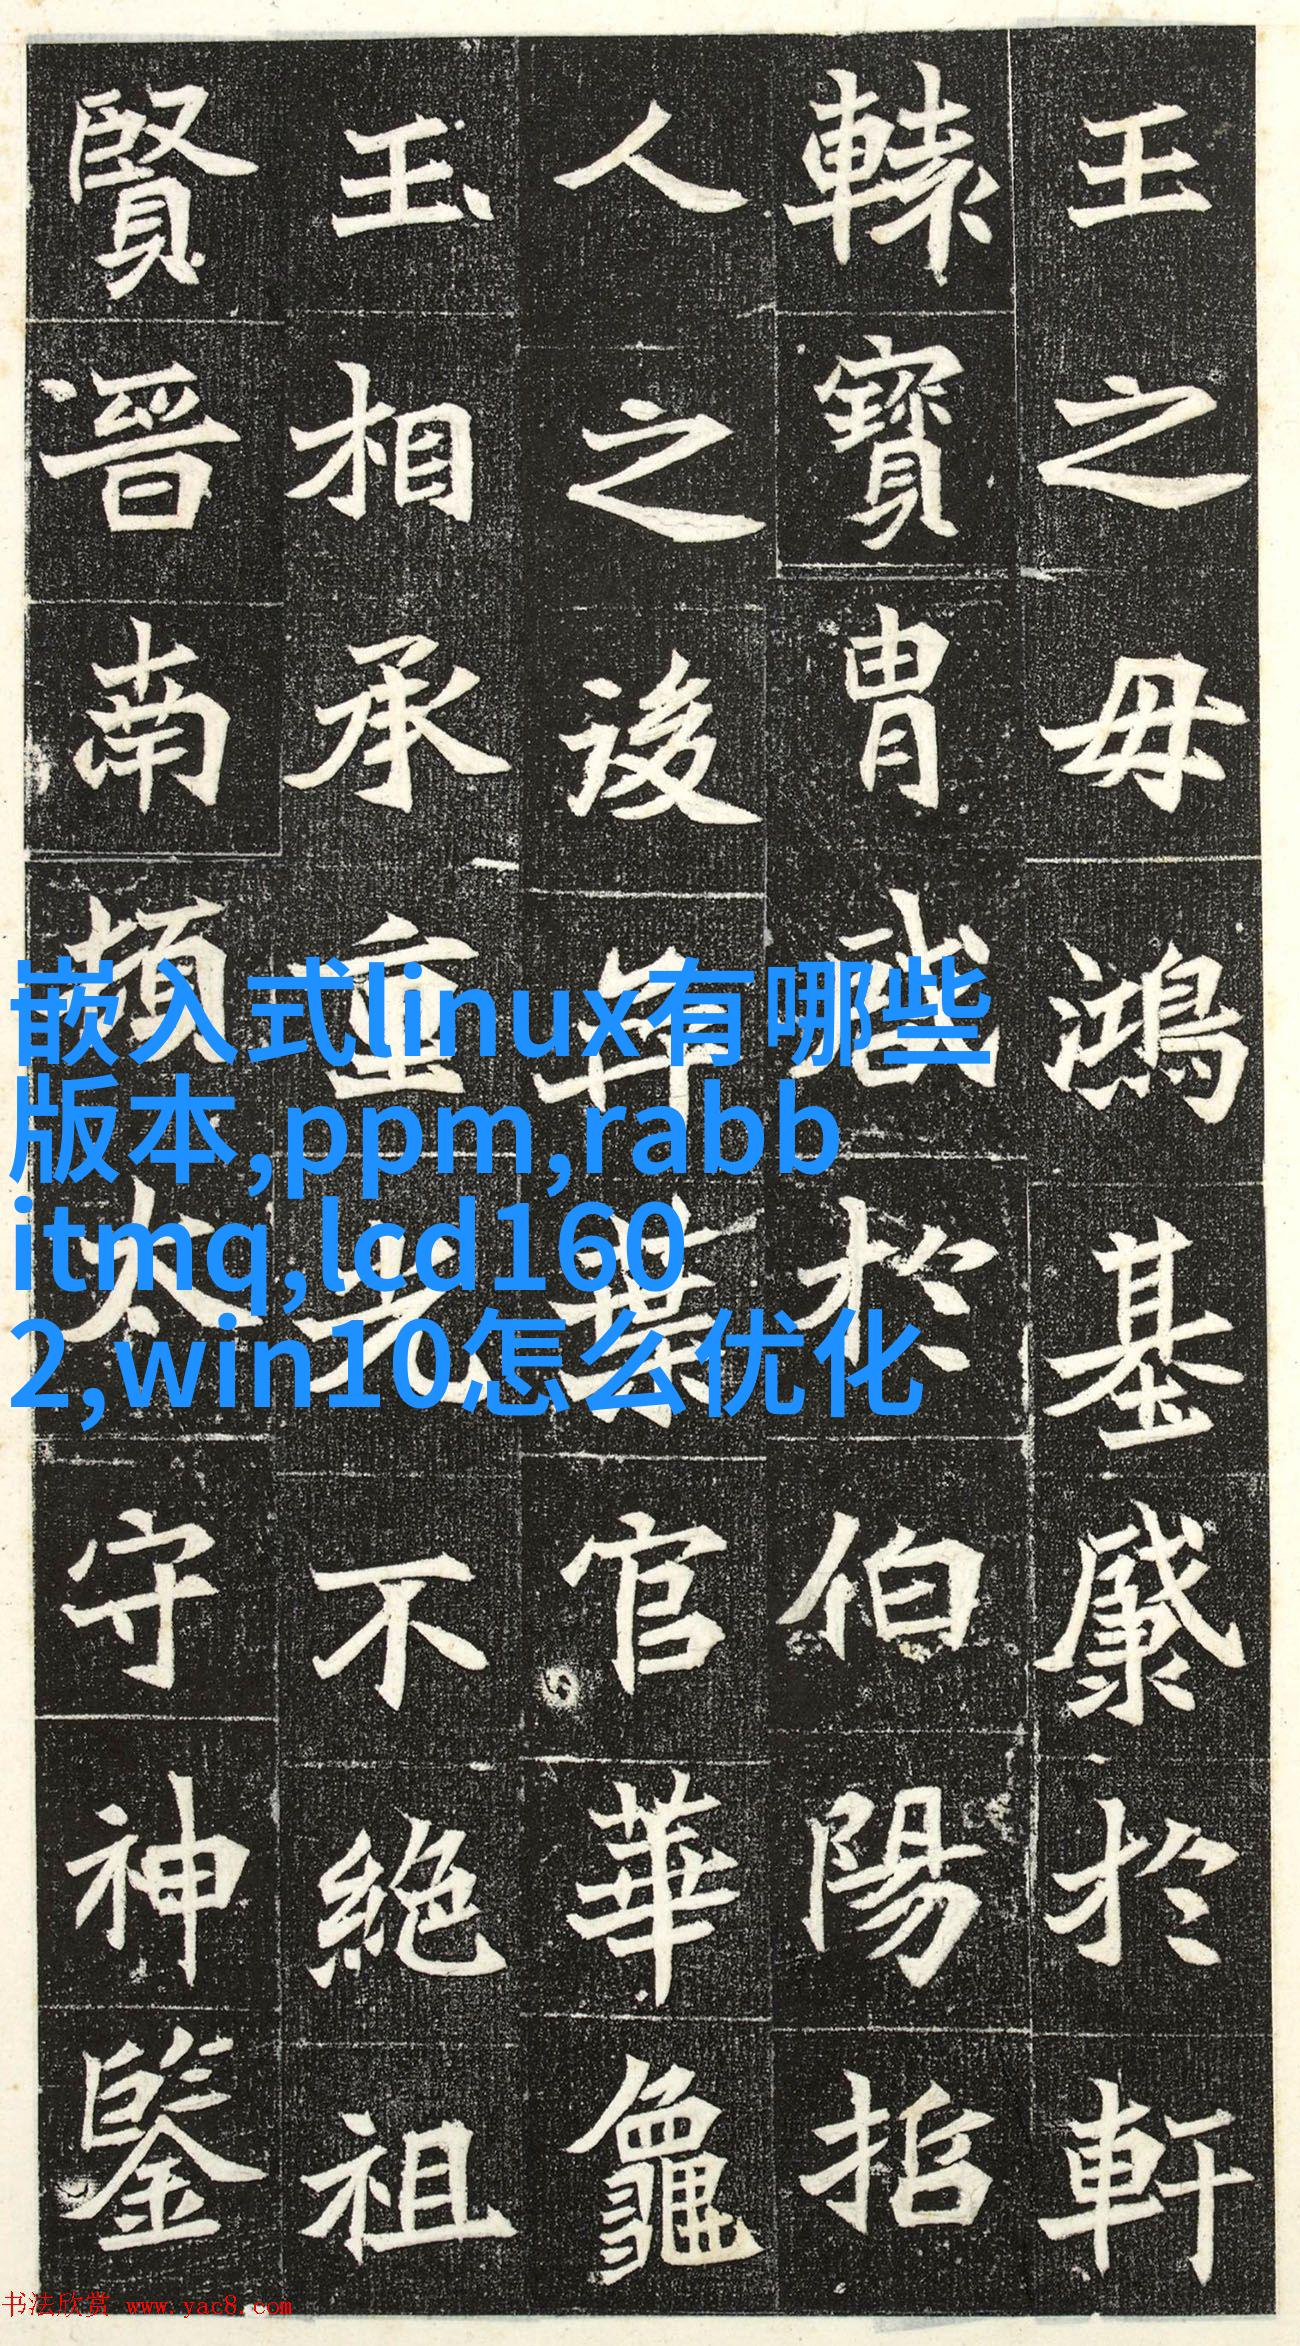 王之母鴻基於軒
轅寶胄於伯陽指
人之後葉官華龜
玉相承重光不絕祖
賢晉南頓太守神鑒
嵌入式linux有哪些
版本,ppm,rabb
itmq,lcd160
2,win10怎么优化
书法欣赏 www.yac8.com